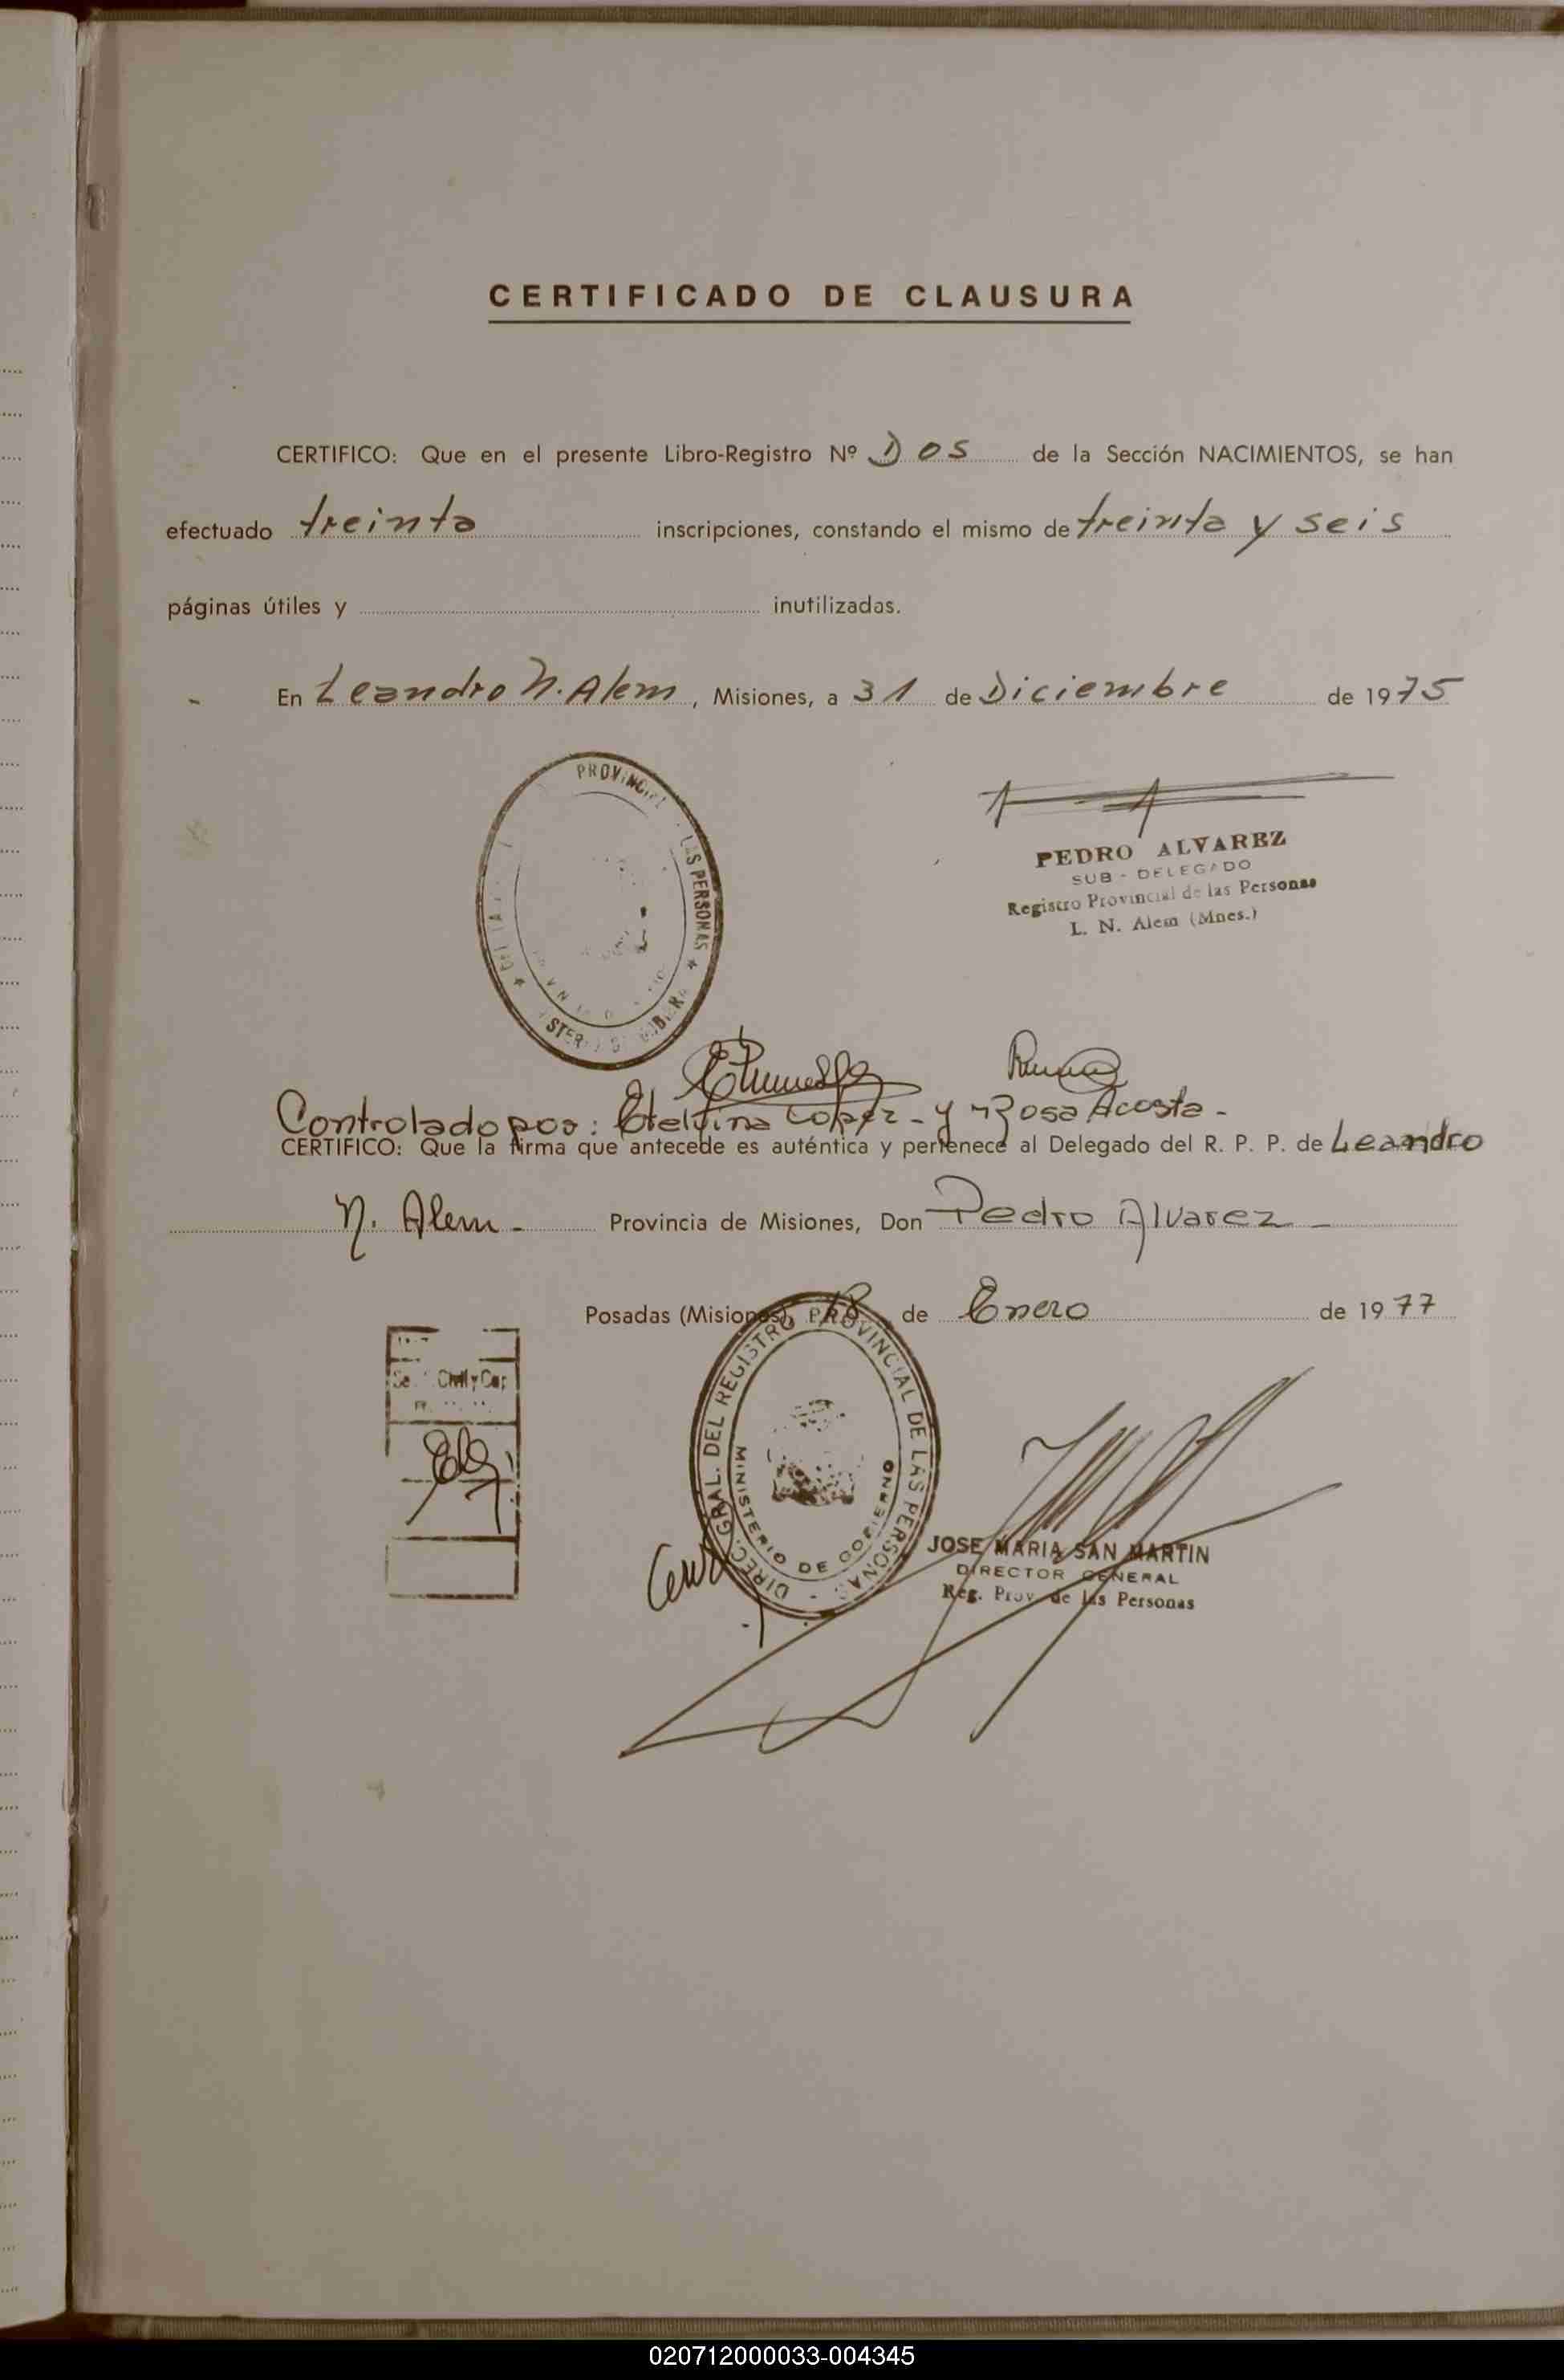 CERTIFICADO DE CLAUSURA
CERTIFICO: Que en el presente Libro-Registro Nº Dos de la Sección NACIMIENTOS, se han
efectuado treinta inscripciones, constando el mismo de treinta y seis
páginas útiles y inutilizadas.
En Leandro N. Alem, Misiones, a 31 de Diciembre de 1975
PROVINCIAL LAS PERSONAS
PEDRO ALVAREZ
SUB - DELEGADO
Registro Provincial de las Personas
L. N. Alem (Mnes.)
Controlado por: Etelvina Lopez - y Rosa Acosta -
CERTIFICO: Que la firma que antecede es auténtica y pertenece al Delegado del R. P. P. de Leandro
N. Alem - Provincia de Misiones, Don Pedro Alvarez -
Posadas (Misiones), 18 de Enero de 1977
Civil y Cap
DIREC. GRAL. DEL REGISTRO PROVINCIAL DE LAS PERSONAS -
MINISTERIO DE GOBIERNO
JOSE MARIA SAN MARTIN
DIRECTOR GENERAL
Reg. Prov. de las Personas
020712000033-004345